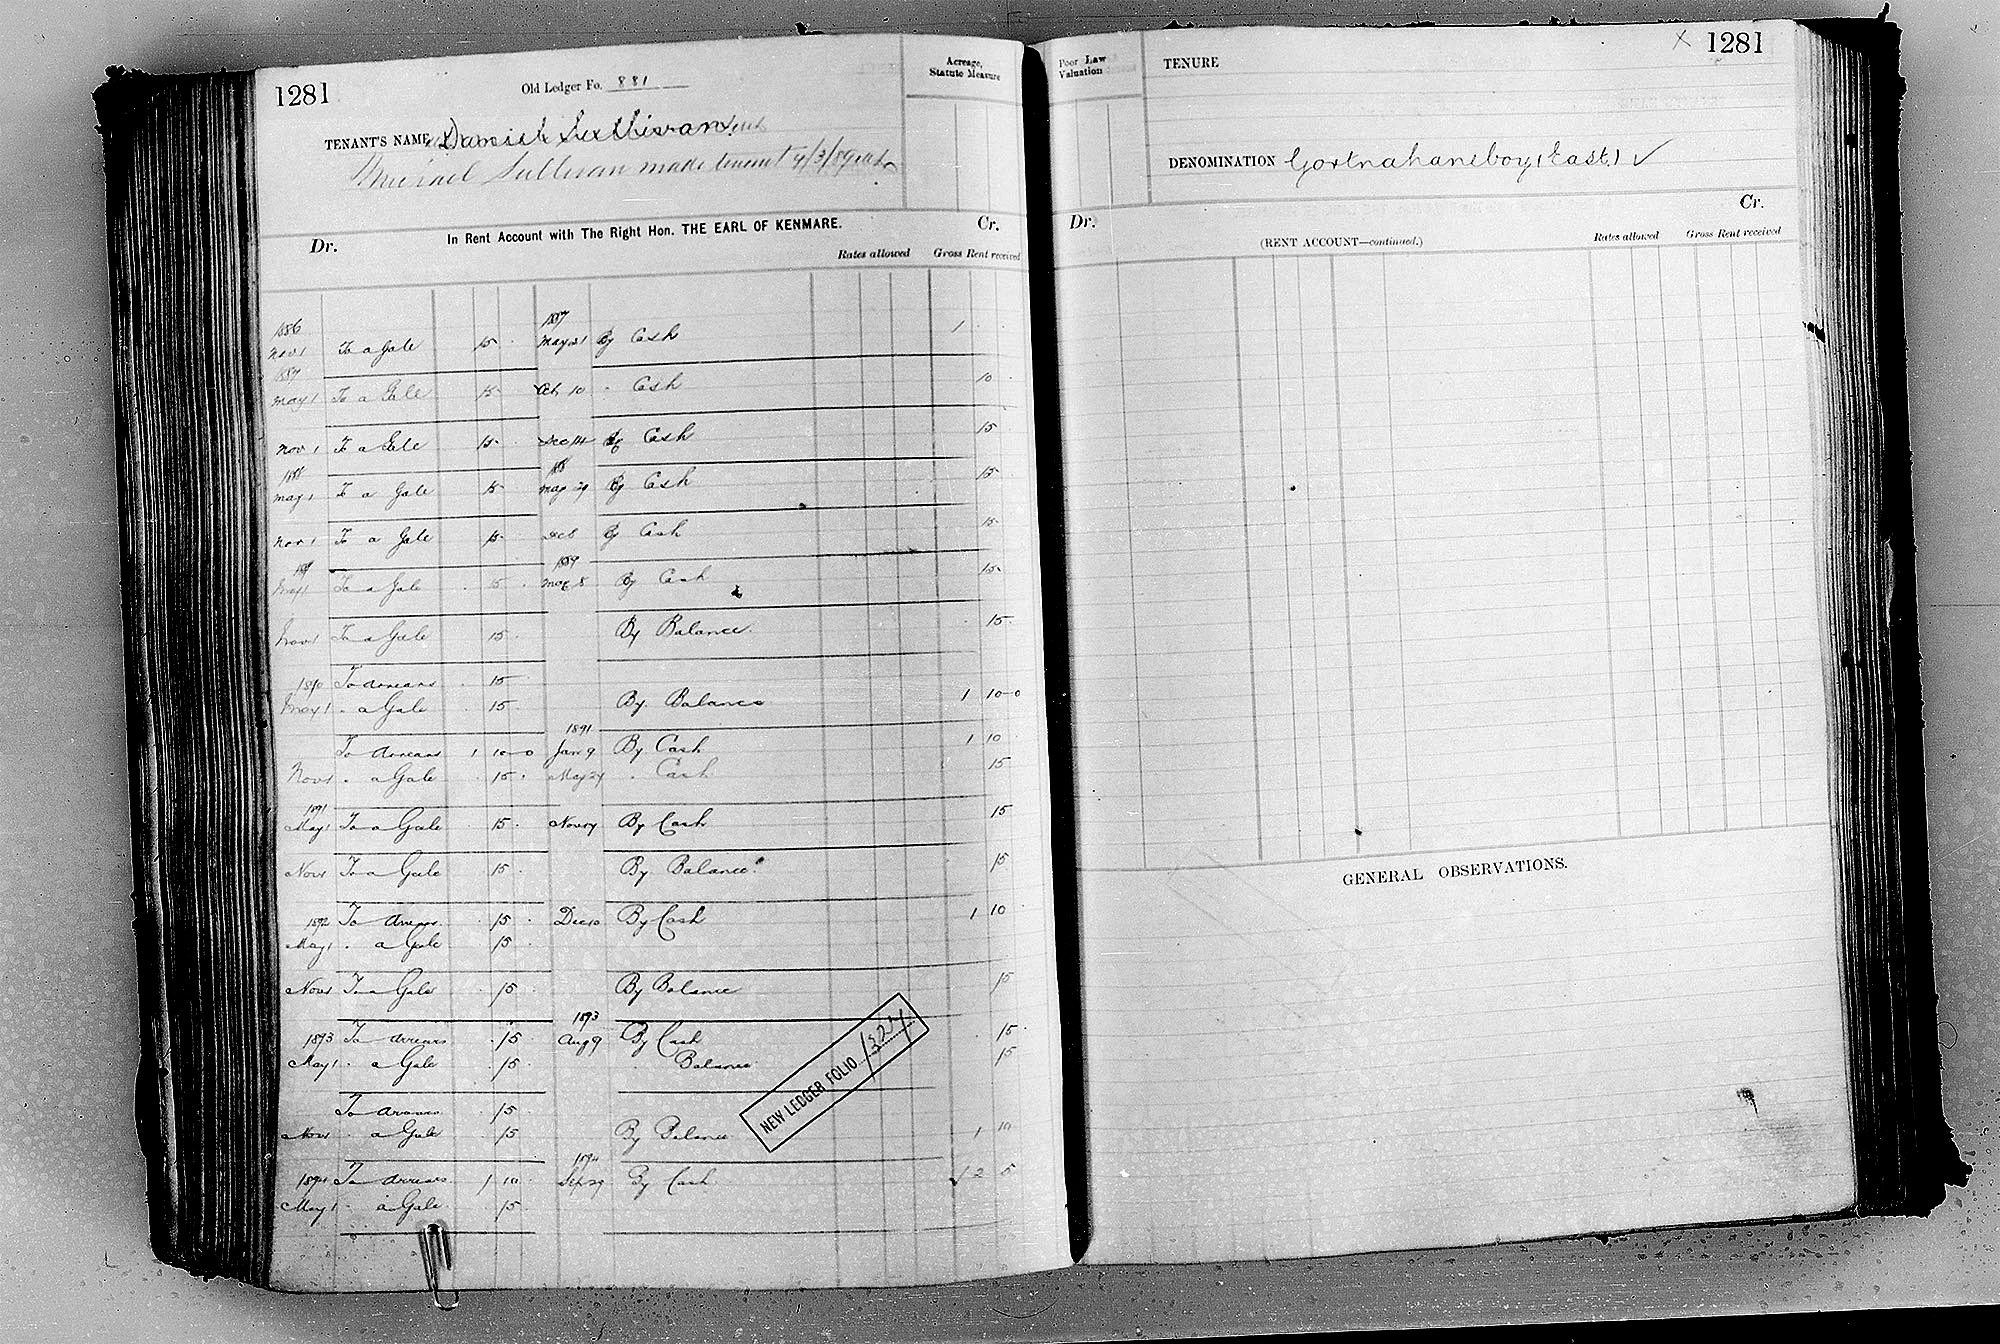 1281
Old Ledger Fo. 881
Acreage,
Statute Measure
TENANT'S NAME Daniel Sullivan
Michael Sullivan made tenant 4/3/89
Dr. In Rent Account with The Right Hon. THE EARL OF KENMARE. Cr.
Rates allowed Gross Rent received
1886 1887
Nov 1 To a Gale 15 May 21 By Cash 1
1887
May 1 To a Gale 15 Oct 10 " Cash 10
Nov 1 To a Gale 15 Dec 14 By Cash 15
1888 1888
May 1 To a Gale 15 May 29 By Cash 15
Nov 1 To a Gale 15 Dec 8 By Cash 15
1889 1889
May 1 To a Gale 15 May 8 By Cash 15
Nov 1 To a Gale 15 By Balance 15
1890 To arrears 15
May 1 " a Gale 15 By Balance 1 10-0
1891
To arrears 1 10-0 Jan 9 By Cash 1 10
Nov 1 " a Gale 15 May 27 " Cash 15
1891
May 1 To a Gale 15 Nov 17 By Cash 15
Nov 1 To a Gale 15 By Balance 15
1892 To arrears 15 Dec 10 By Cash 1 10
May 1 " a Gale 15
Nov 1 To a Gale 15 By Balance 15
1893
1893 To arrears 15 Aug 9 By Cash 15
May 1 " a Gale 15 " Balance 15
NEW LEDGER FOLIO
To arrears 15
Nov 1 " a Gale 15 By Balance 1 10
1894
1894 To arrears 1 10 Sep 29 By Cash 1 2 5
May 1 " a Gale 15
X 1281
Poor Law
Valuation
TENURE
DENOMINATION Gortnahaneboy (East) ✓
Dr. Cr.
(RENT ACCOUNT—continued.)
Rates allowed Gross Rent received
GENERAL OBSERVATIONS.